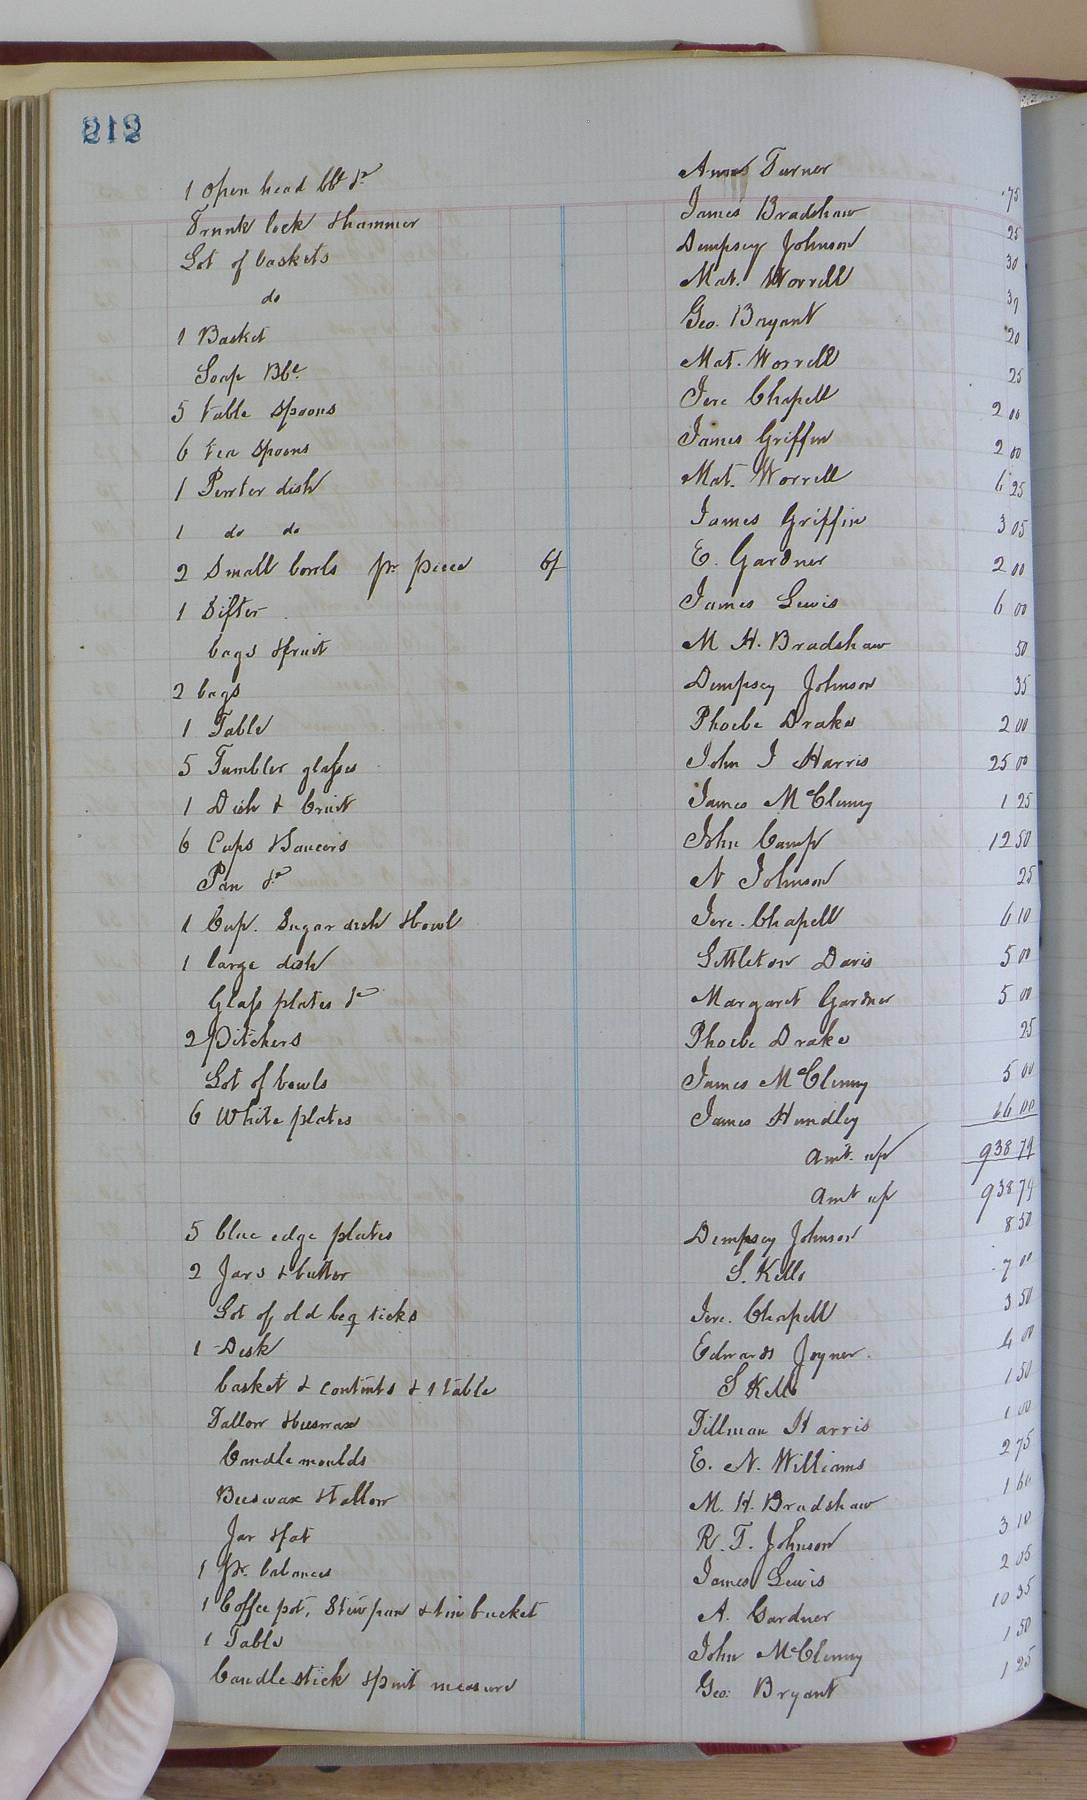 212
1 Open head bbl &c Amos Turner .75
Trunk lock & hammer James Bradshaw 25
Lot of baskets Dempsey Johnson 30
do Mat. Worrell
1 Basket Geo. Bryant 20
Soap Bbl. Mat. Worrell 25
5 table spoons Jere Chapell 2 00
6 tea spoons James Griffin 2 00
1 Pewter dish Mat. Worrell 6 25
1 do do James Griffin 3 05
2 Small bowls pr piece E. Gardner 2 00
1 Sifter James Lewis 6 00
bags & fruit M H. Bradshaw 50
2 bags Dempsey Johnson 35
1 Table Phoebe Drake 2 00
5 Tumbler glasses John J Harris 25 00
1 Dish & Cruit James McClenny 1 25
6 Cups & Saucers John Camp 12 50
Pan &c N Johnson 25
1 Cup. Sugar dish & bowl Jere. Chapell 6 10
1 large dish Littleton Davis 5 00
Glass plates &c Margaret Gardner 5 00
2 Pitchers Phoebe Drake 25
Lot of bowls James McClenny 5 00
6 White plates James Hundley 16 00
Amt. up 938 79
Amt up 938 79
5 blue edge plates Dempsey Johnson 8 50
2 Jars & butter S. Kello 7 00
Lot of old beg ticks Jere. Chapell 3 50
1 Desk Edwards Joyner. 4 00
basket & contents & 1 table S Kello 1 50
Tallow & beeswax Tillman Harris 1 00
Candle moulds E. N. Williams 2 75
Beeswax & tallow M. H. Bradshaw 1 60
Jar & fat R. T. Johnson 3 10
1 pr. balances James Lewis 2 05
1 Coffee pot, Stewpan & tin bucket A. Gardner 10 35
1 Table John McClenny 1 50
Candlestick & pint measure Geo. Bryant 1 25